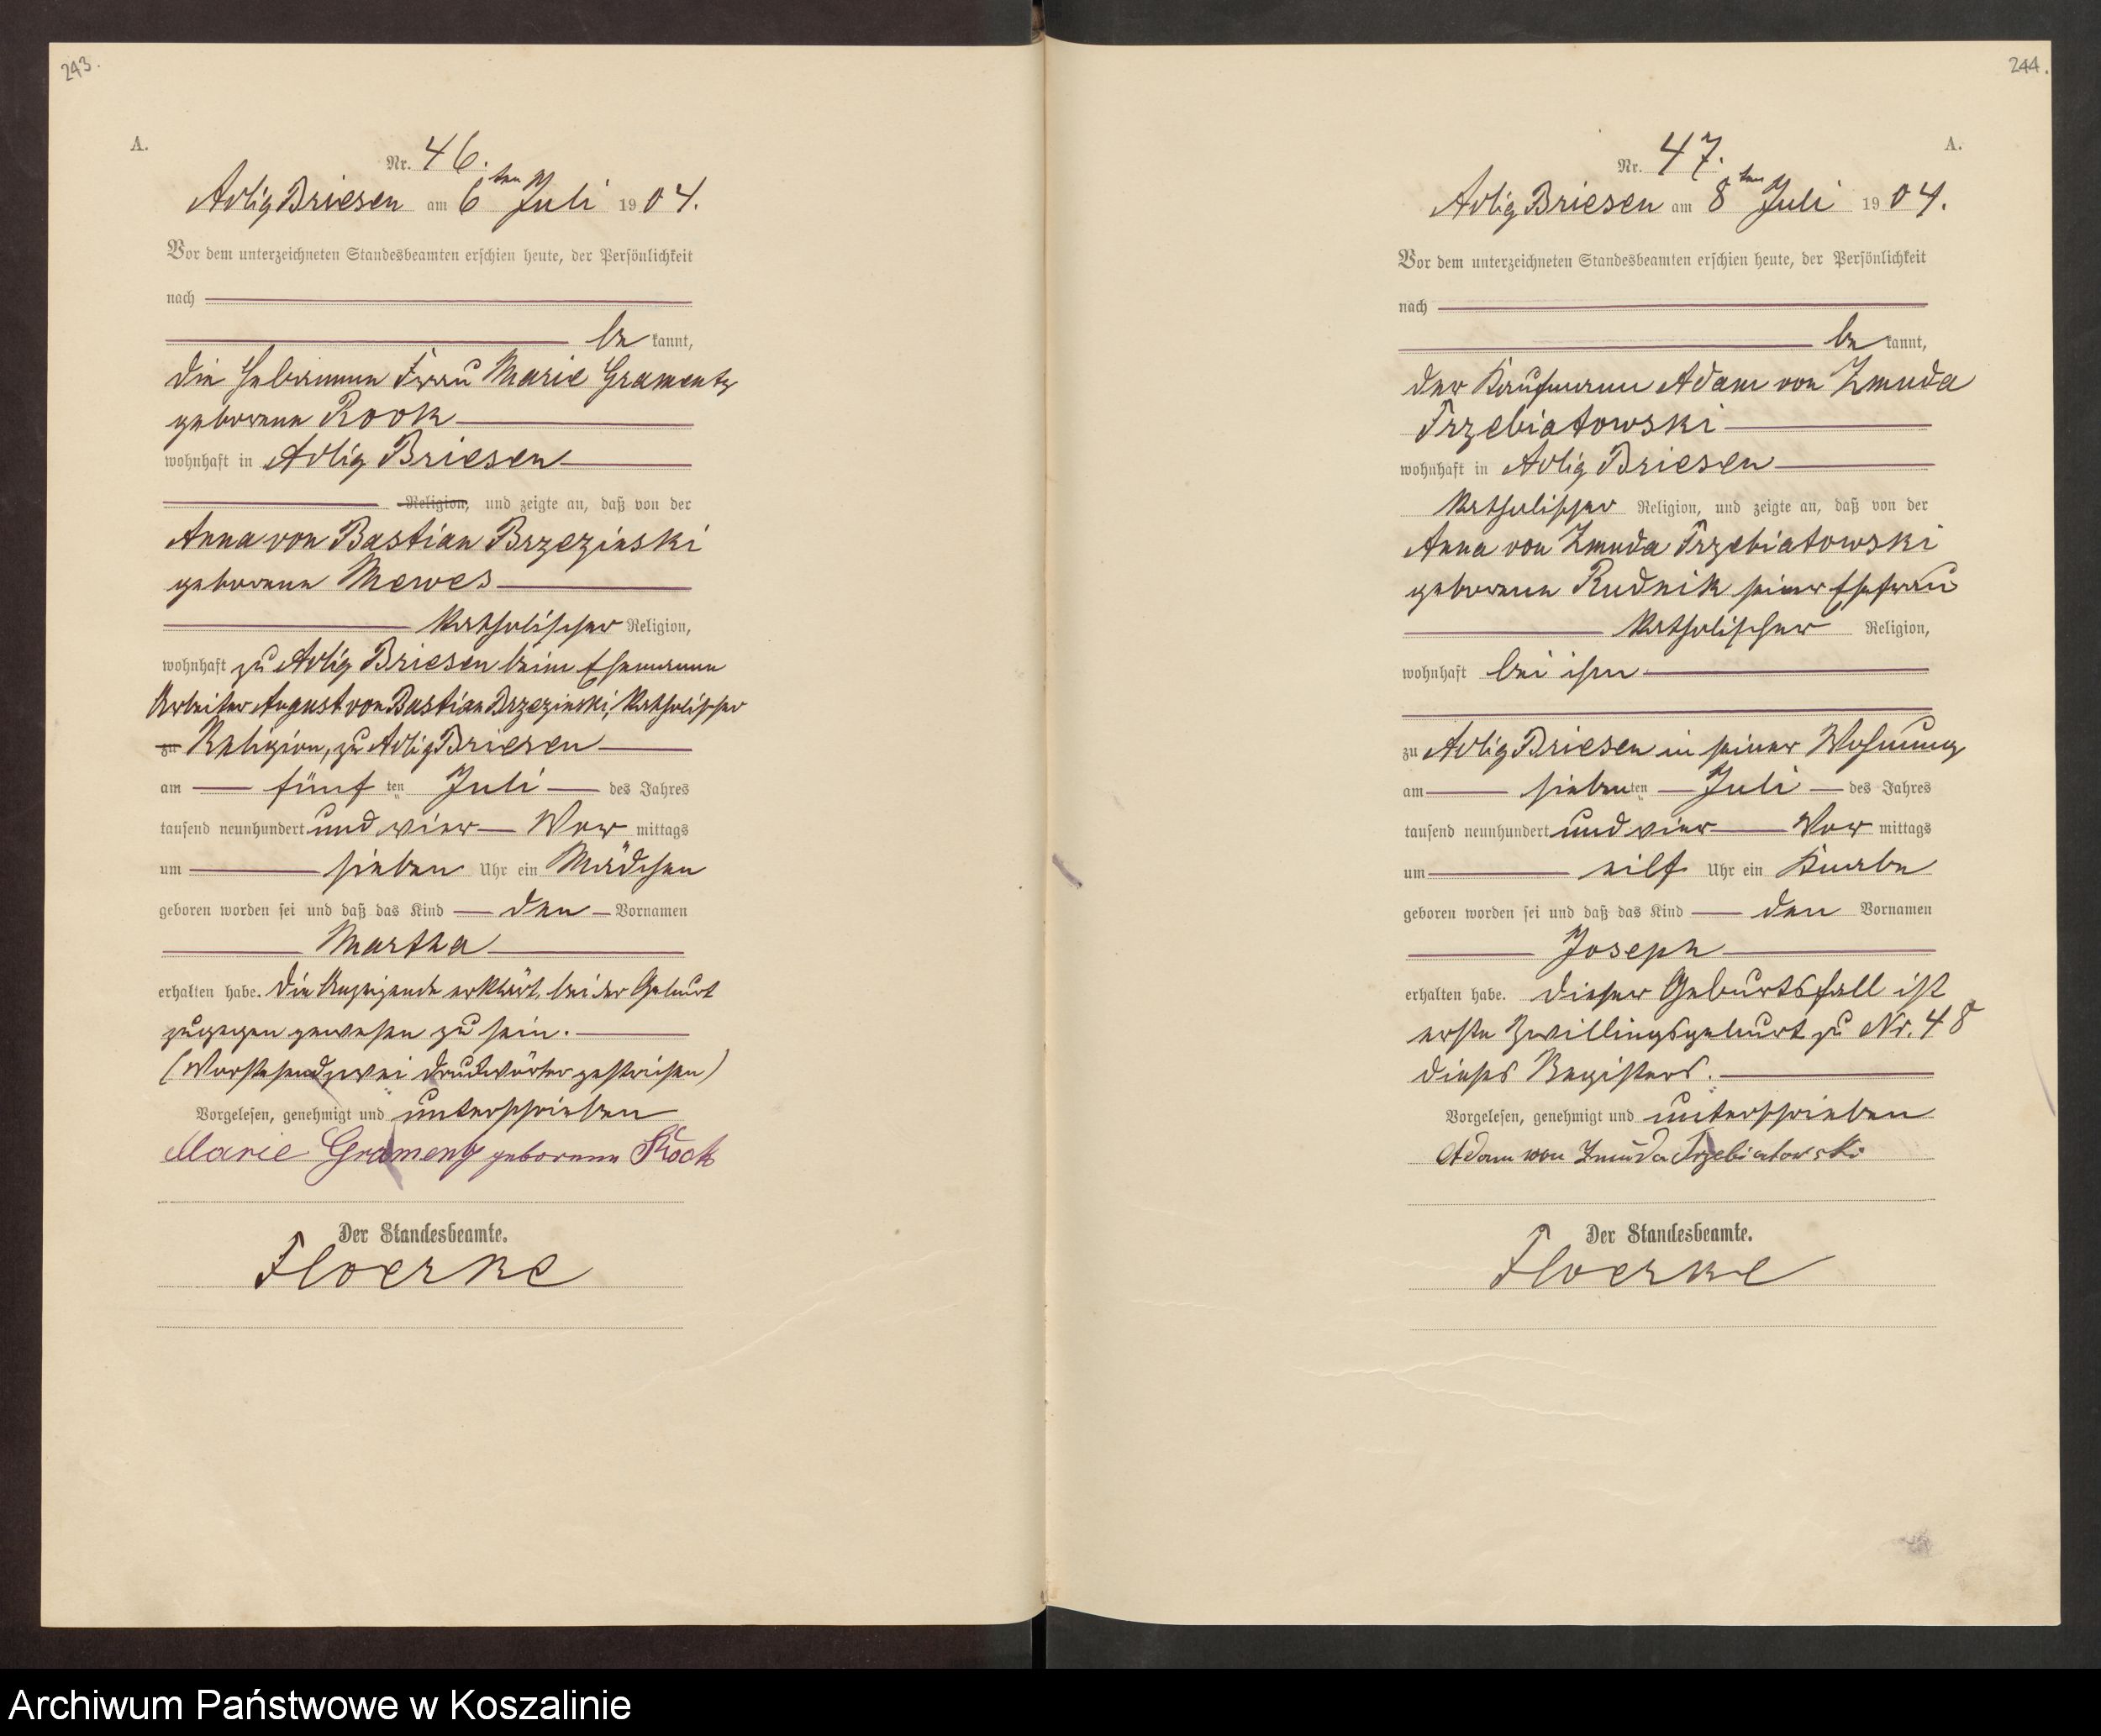 243.
A.
Nr. 46.
Adlig Briesen am 6ten Juli 1904.
Vor dem unterzeichneten Standesbeamten erschien heute, der Persönlichkeit
nach
be kannt,
die Hebamme Frau Marie Gramentz
geborene Kook
wohnhaft in Adlig Briesen
Religion, und zeigte an, daß von der
Anna von Bastian Brzezinski
geborene Mewes
katholischer Religion,
wohnhaft zu Adlig Briesen beim Ehemanne
Arbeiter August von Bastian Brzezinski, katholischer
zu Religion, zu Adlig Briesen
am fünf ten Juli des Jahres
tausend neunhundert und vier Vor mittags
um sieben Uhr ein Mädchen
geboren worden sei und daß das Kind den Vornamen
Martha
erhalten habe. Die Anzeigende erklärt, bei der Geburt
zugegen gewesen zu sein.
(Vorstehend zwei Druckwörter gestrichen)
Vorgelesen, genehmigt und unterschrieben
Marie Gramentz geborene Kook
Der Standesbeamte.
Floerke
244.
A.
Nr. 47.
Adlig Briesen am 8ten Juli 1904.
Vor dem unterzeichneten Standesbeamten erschien heute, der Persönlichkeit
nach
be kannt,
der Kaufmann Adam von Zmuda
Trzebiatowski
wohnhaft in Adlig Briesen
katholischer Religion, und zeigte an, daß von der
Anna von Zmuda Trzebiatowski
geborene Rudnik seiner Ehefrau
katholischer Religion,
wohnhaft bei ihm
zu Adlig Briesen in seiner Wohnung
am sieben ten Juli des Jahres
tausend neunhundert und vier Vor mittags
um eilf Uhr ein Knabe
geboren worden sei und daß das Kind den Vornamen
Joseph
erhalten habe. Dieser Geburtsfall ist
erste Zwillingsgeburt zu Nr. 48
dieses Registers.
Vorgelesen, genehmigt und unterschrieben
Adam von Zmuda Trzebiatowski
Der Standesbeamte.
Floerke
Archiwum Państwowe w Koszalinie